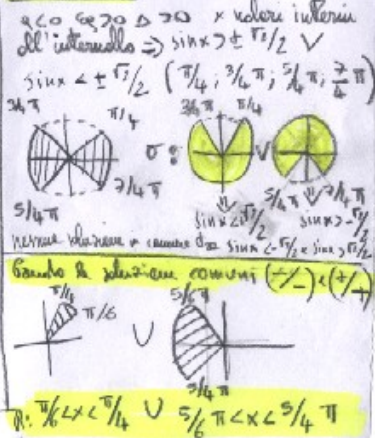 a<0 Δ>0 x valori interni
dell'intervallo => sinx > ± √2/2 V
sinx < ± √2/2 (π/4 ; 3/4 π ; 5/4 π ; 7/4 π)
3/4 π π/4 3/4 π π/4
σ: V
5/4 π 7/4 π 5/4 π 7/4 π
sinx < √2/2 sinx > -√2/2
nessuna soluzione comune sinx < -√2/2 e sinx > √2/2
soluzione comuni (+/-) (+/+)
π/4 π/6 U 5/6 π
5/4 π
R: π/6 < x < π/4 U 5/6 π < x < 5/4 π